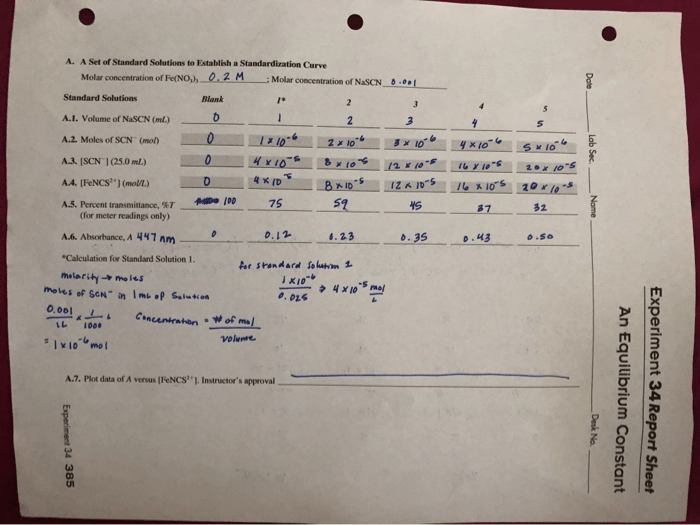 Experiment 34 Report Sheet
An Equilibrium Constant
Date Lab Sec. Name Desk No.
A. A Set of Standard Solutions to Establish a Standardization Curve
Molar concentration of Fe(NO₃)₃ 0.2 M ; Molar concentration of NaSCN 0.001
Standard Solutions Blank 1* 2 3 4 5
A.1. Volume of NaSCN (mL) 0 1 2 3 4 5
A.2. Moles of SCN⁻ (mol) 0 1 x 10⁻⁶ 2 x 10⁻⁶ 3 x 10⁻⁶ 4 x 10⁻⁶ 5 x 10⁻⁶
A.3. [SCN⁻] (25.0 mL) 0 4 x 10⁻⁵ 8 x 10⁻⁵ 12 x 10⁻⁵ 16 x 10⁻⁵ 20 x 10⁻⁵
A.4. [FeNCS²⁺] (mol/L) 0 4 x 10⁻⁵ 8 x 10⁻⁵ 12 x 10⁻⁵ 16 x 10⁻⁵ 20 x 10⁻⁵
A.5. Percent transmittance, %T 100 75 59 45 37 32
(for meter readings only)
A.6. Absorbance, A 447 nm 0 0.12 0.23 0.35 0.43 0.50
*Calculation for Standard Solution 1.
molarity → moles
moles of SCN⁻ in 1 mL of Solution
0.001 / 1L x 1 / 1000 L
= 1 x 10⁻⁶ mol
Concentration = # of mol / volume
for standard solution 1
1 x 10⁻⁶ / 0.025 → 4 x 10⁻⁵ mol / L
A.7. Plot data of A versus [FeNCS²⁺]. Instructor's approval
Experiment 34 385